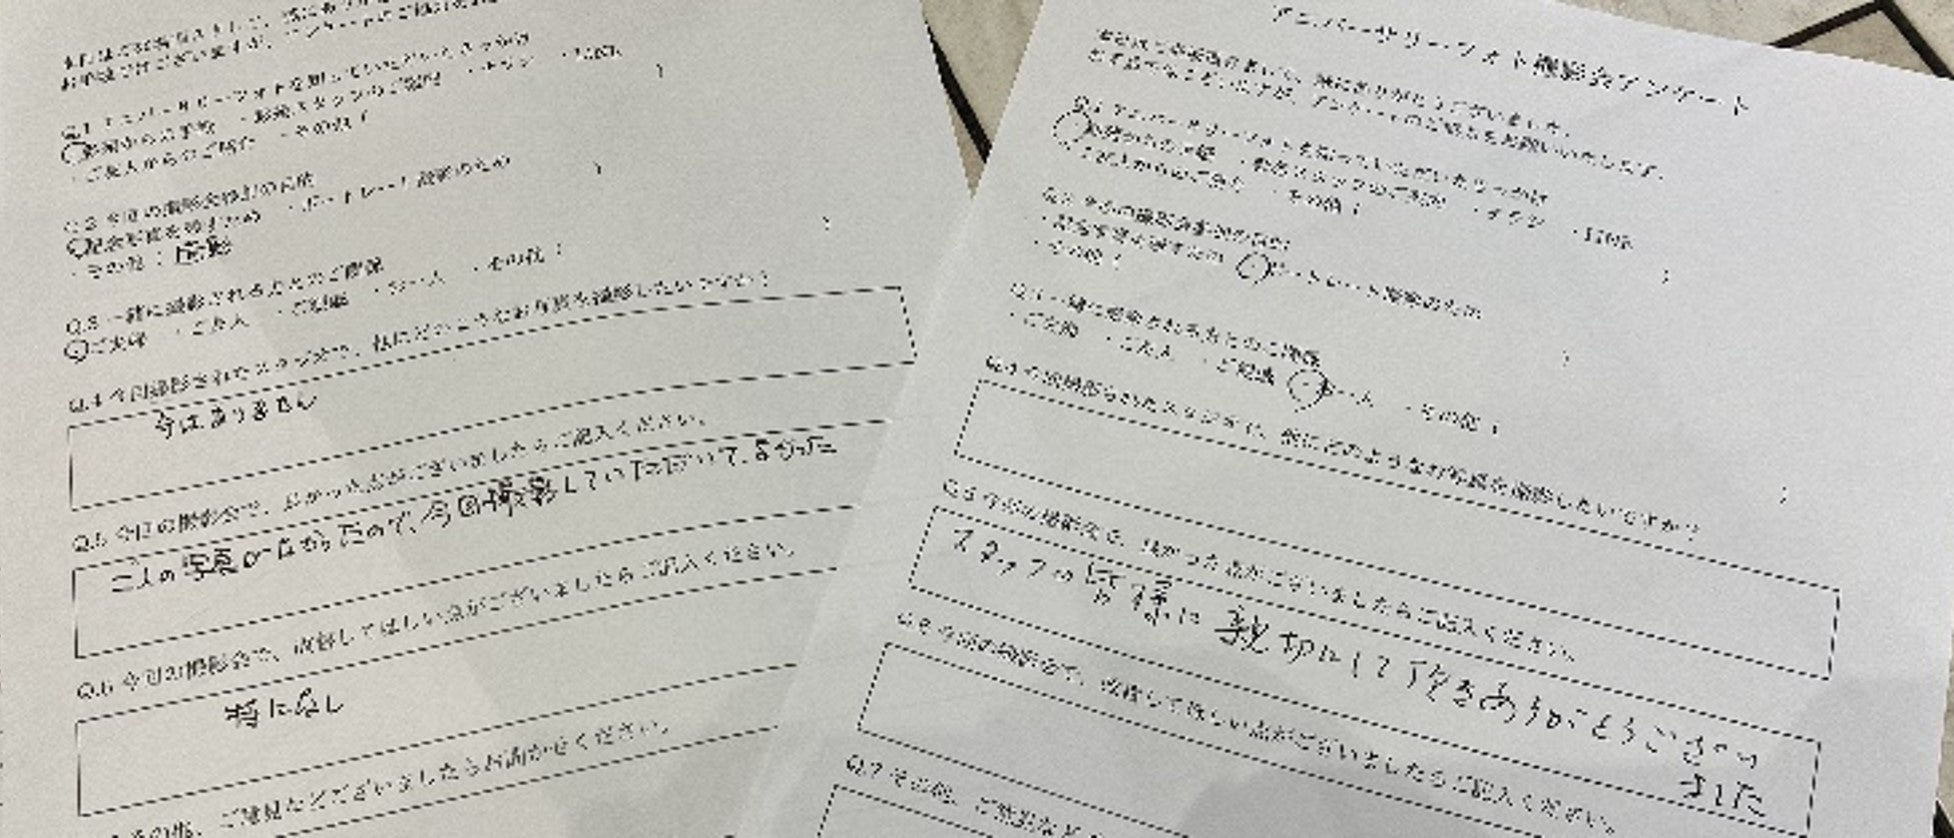 Q.1 アニバーサリーフォトを知っていただいたきっかけ
・ご友人からのご紹介 ・その他（ ）
Q.2 今回の撮影会参加の目的
・記念写真を残すため ・ポートレート撮影のため
・その他（
Q.3 一緒に撮影される方とのご関係
・ご夫婦 ・ご友人 ・ご親族 ・お一人 ・その他（ ）
Q.4 今回撮影されたスタジオで、他にどのようなお写真を撮影したいですか？
今はありません
Q.5 今回の撮影会で、良かった点がございましたらご記入ください。
二人の写真がなかったので、今回撮影していただいて、よかった
Q.6 今回の撮影会で、改善してほしい点がございましたらご記入ください。
特になし
その他、ご意見などございましたらお聞かせください。
アニバーサリーフォト撮影会アンケート
Q.1 アニバーサリーフォトを知っていただいたきっかけ
・ご友人からのご紹介 ・その他（ ）
Q.2 今回の撮影会参加の目的
・記念写真を残すため ・ポートレート撮影のため
・その他（ ）
Q.3 一緒に撮影される方とのご関係
・ご夫婦 ・ご友人 ・ご親族 ・お一人 ・その他（ ）
Q.4 今回撮影されたスタジオで、他にどのようなお写真を撮影したいですか？
Q.5 今回の撮影会で、良かった点がございましたらご記入ください。
スタッフの皆様に親切にして頂きありがとうござい
ました
Q.6 今回の撮影会で、改善してほしい点がございましたらご記入ください。
Q.7 その他、ご意見など